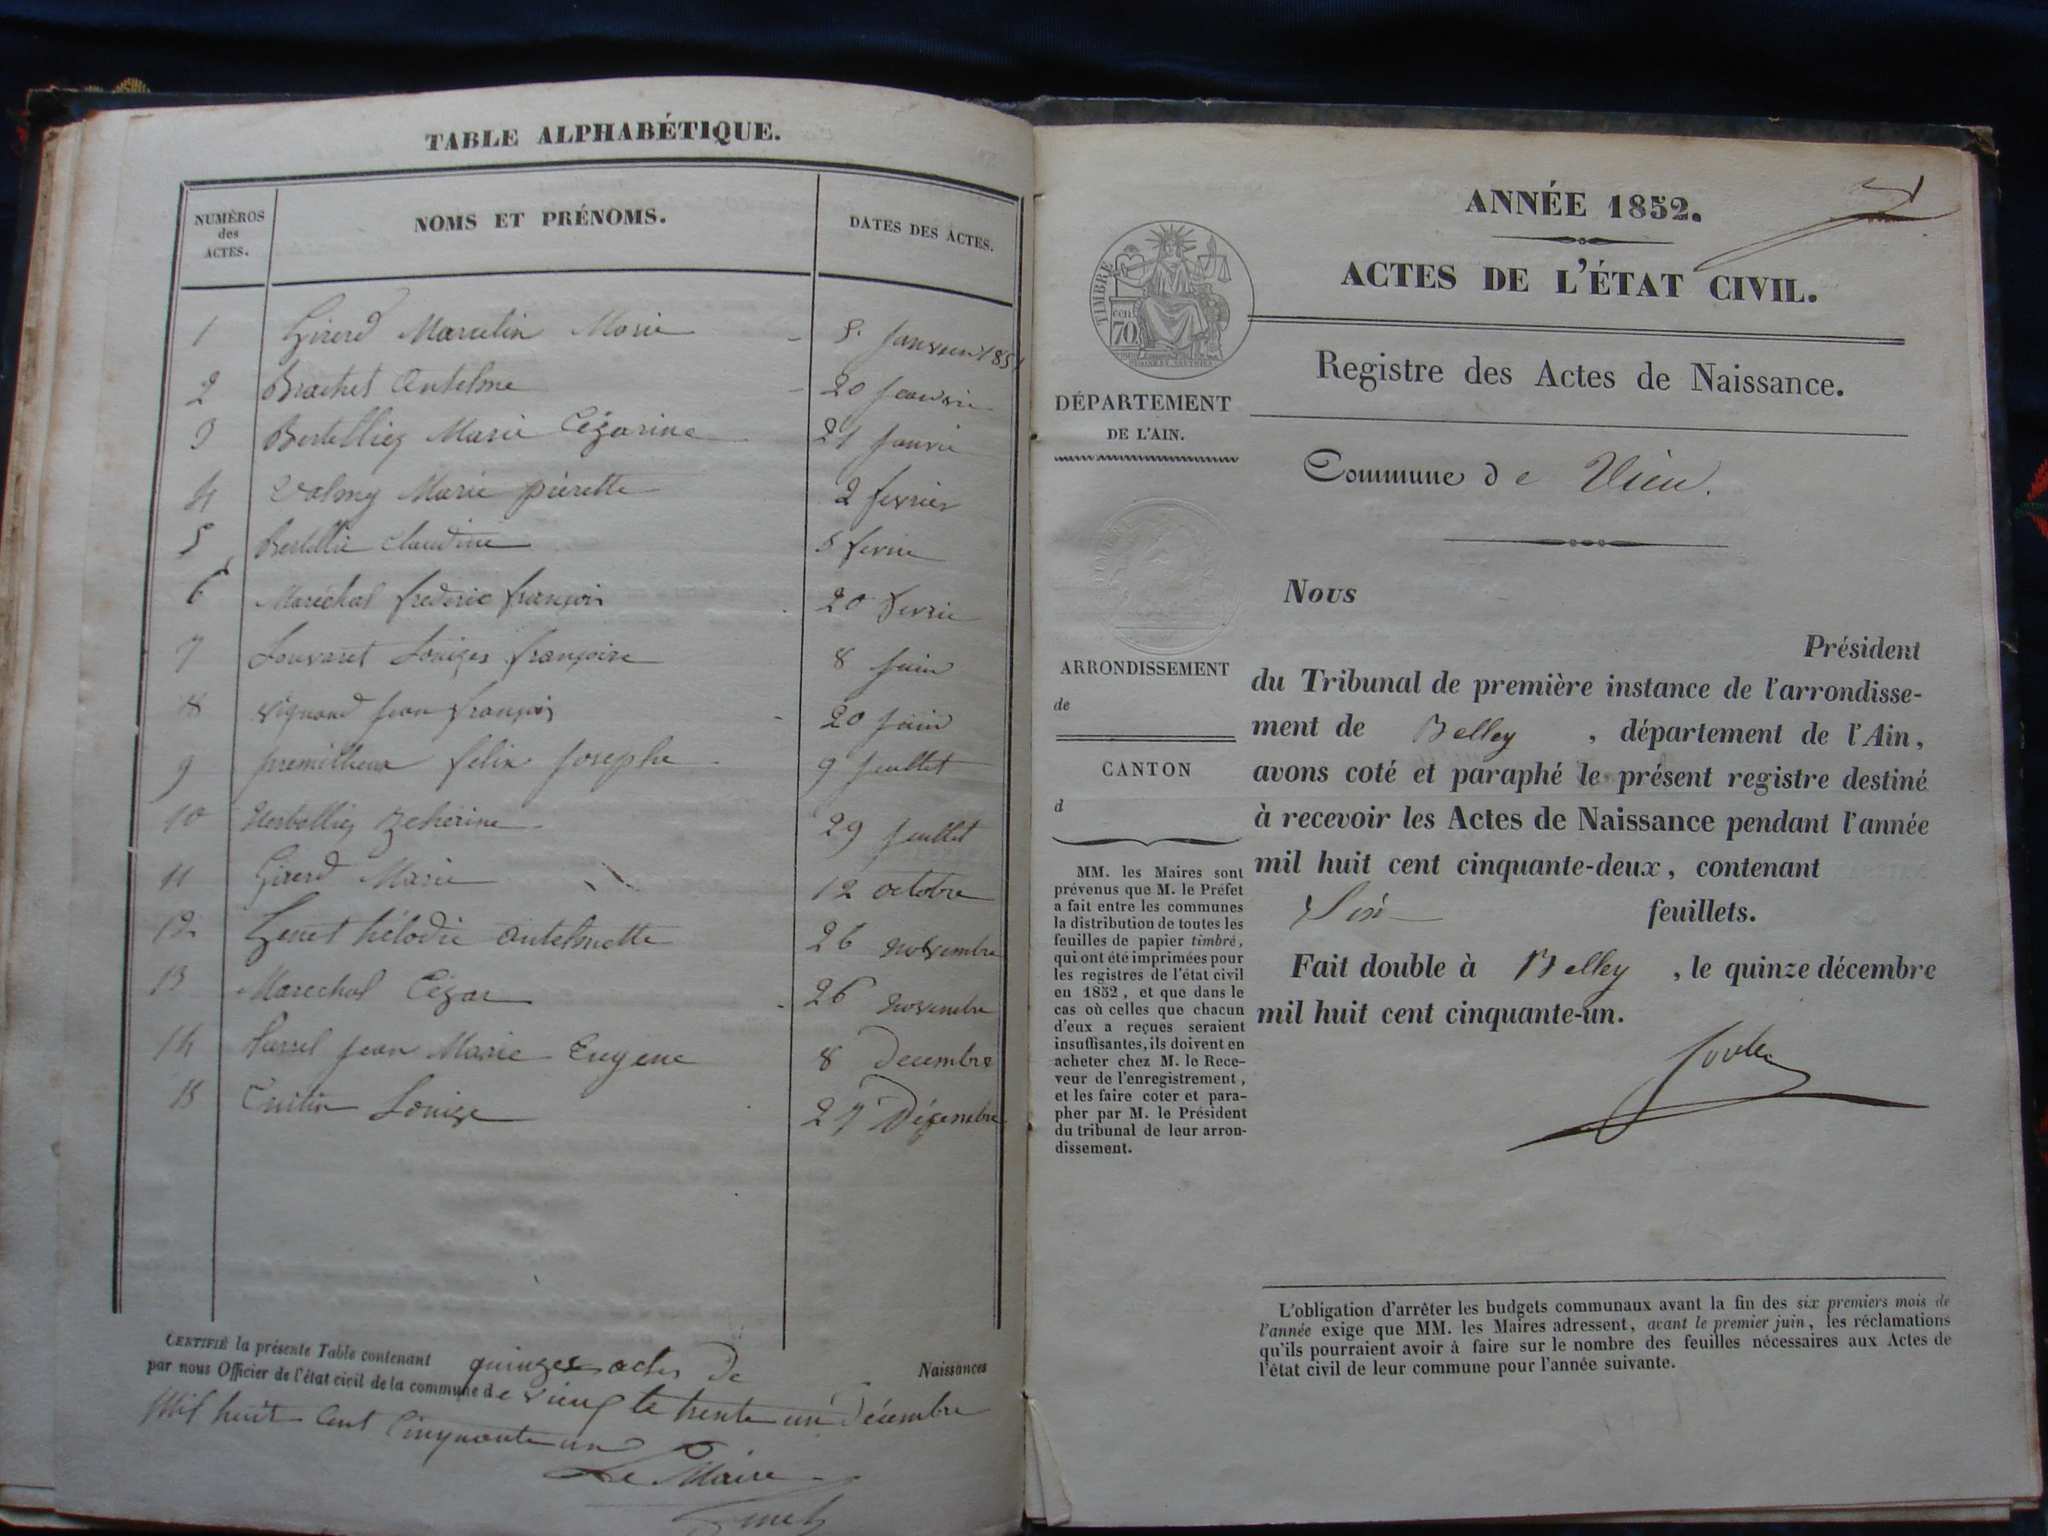 TABLE ALPHABÉTIQUE.
NUMÉROS des ACTES.
NOMS ET PRÉNOMS.
DATES DES ACTES.
1 Girerd Marcelin Marie 5 Janvier 1851
2 Brachet Antelme 20 Janvier
3 Bertelliez Marie Cézarine 21 Janvie
4 Valmy Marie pierette 2 fevrier
5 Bertellie Claudine 5 fevrie
6 Maréchal frederic françois 20 fevrie
7 Louvaret Louizes françoise 8 Juin
8 Vignand Jean françois 20 Juin
9 premillieux felix Josephe 9 Juillet
10 29 Juillet
11 Girerd Marie 12 octobre
12 Genet hélodie antelmette 26 novembre
13 Marechal Cézar 26 novembre
14 Jean Marie Eugene 8 Decembre
15 Louize 27 Décembre
CERTIFIÉ la présente Table contenant quinzes actes de Naissances
par nous Officier de l'état civil de la commune de vieu le trente un Décembre
Mil huit Cent Cinquante un
Le Maire
ANNÉE 1852.
ACTES DE L'ÉTAT CIVIL.
TIMBRE
cent
70
Registre des Actes de Naissance.
DÉPARTEMENT
DE L'AIN.
Commune de Vieu.
ARRONDISSEMENT
de
CANTON
d
MM. les Maires sont
prévenus que M. le Préfet
a fait entre les communes
la distribution de toutes les
feuilles de papier timbré,
qui ont été imprimées pour
les registres de l'état civil
en 1852, et que dans le
cas où celles que chacun
d'eux a reçues seraient
insuffisantes, ils doivent en
acheter chez M. le Rece-
veur de l'enregistrement,
et les faire coter et para-
pher par M. le Président
du tribunal de leur arron-
dissement.
Nous
Président
du Tribunal de première instance de l'arrondisse-
ment de Belley, département de l'Ain,
avons coté et paraphé le présent registre destiné
à recevoir les Actes de Naissance pendant l'année
mil huit cent cinquante-deux, contenant
Six feuillets.
Fait double à Belley, le quinze décembre
mil huit cent cinquante-un.
L'obligation d'arrêter les budgets communaux avant la fin des six premiers mois de
l'année exige que MM. les Maires adressent, avant le premier juin, les réclamations
qu'ils pourraient avoir à faire sur le nombre des feuilles nécessaires aux Actes de
l'état civil de leur commune pour l'année suivante.